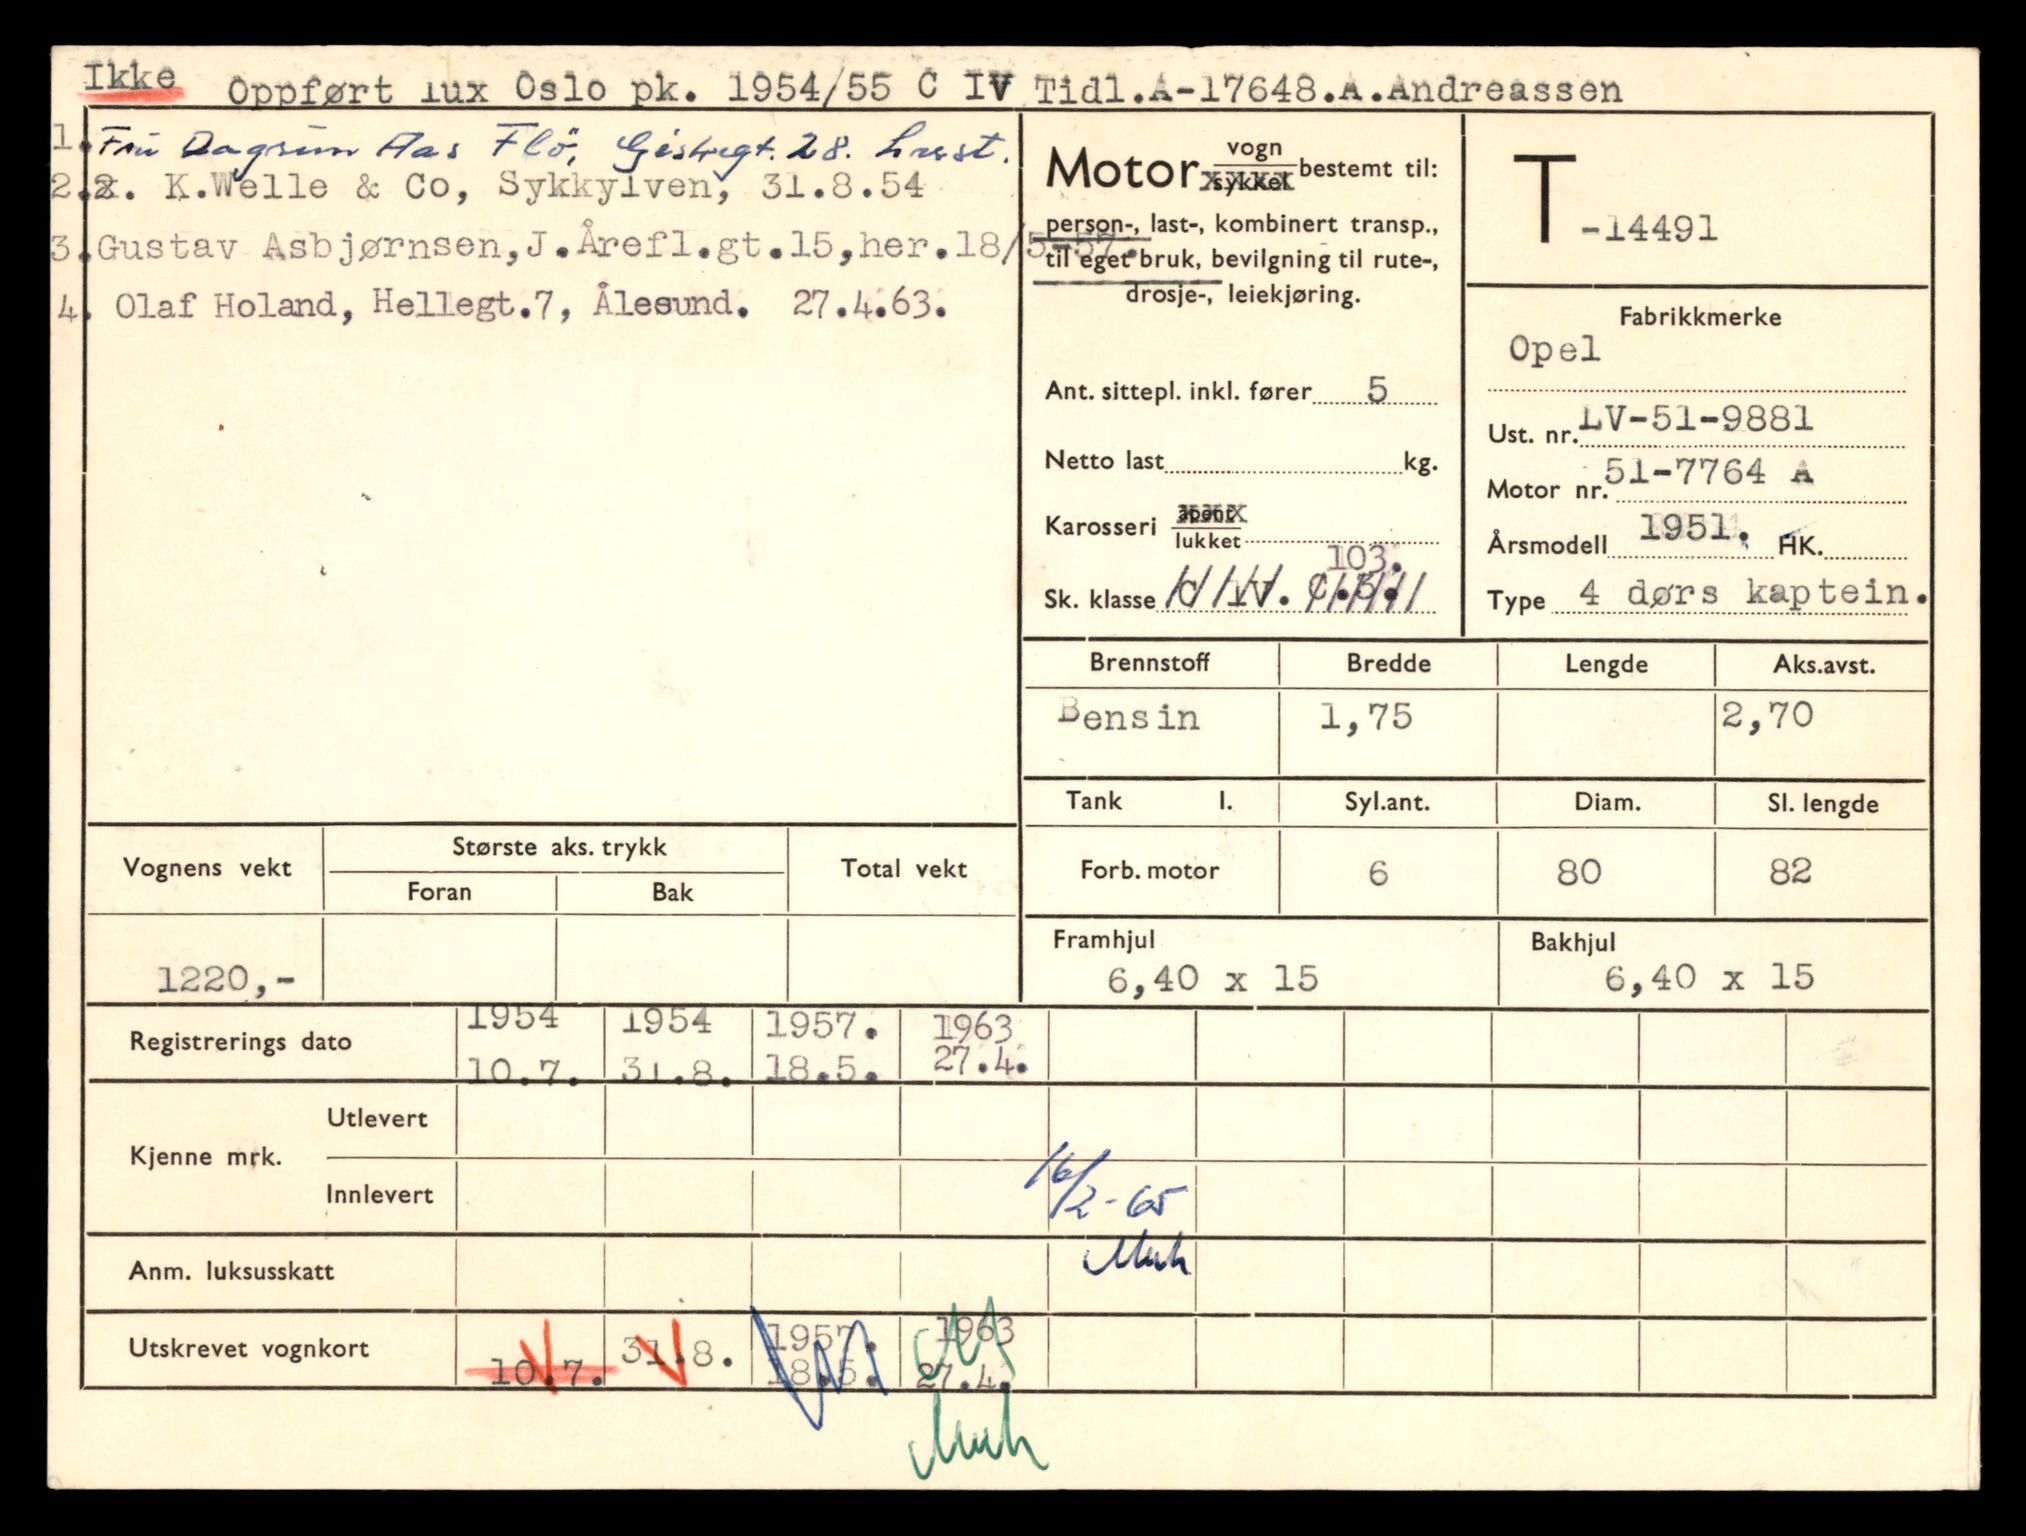 Ikke Oppført lux Oslo pk. 1954/55 C IV Tidl.A-17648.A.Andreassen
1. Fru Dagrun Aas Flö, 28.
2. K.Welle & Co, Sykkylven, 31.8.54
3. Gustav Asbjørnsen, J.Årefl.gt.15,her.18/5-57.
4. Olaf Holand, Hellegt.7, Ålesund. 27.4.63.
Motor vogn sykkel bestemt til:
person-, last-, kombinert transp.,
til eget bruk, bevilgning til rute-,
drosje-, leiekjøring.
Ant. sittepl. inkl. fører 5
Netto last kg.
Karosseri åpent lukket
103.
Sk. klasse C IV.
T -14491
Fabrikkmerke
Opel
Ust. nr. LV-51-9881
Motor nr. 51-7764 A
Årsmodell 1951. HK.
Type 4 dørs kaptein.
Brennstoff Bredde Lengde Aks.avst.
Bensin 1,75 2,70
Tank l. Syl.ant. Diam. Sl. lengde
Forb. motor 6 80 82
Framhjul Bakhjul
6,40 x 15 6,40 x 15
Vognens vekt Største aks. trykk Total vekt
Foran Bak
1220,-
Registrerings dato 1954 1954 1957. 1963
10.7. 31.8. 18.5. 27.4.
Kjenne mrk. Utlevert
Innlevert 16/2-65
Anm. luksusskatt
Utskrevet vognkort 10.7. 31.8. 1957. 18.5. 1963 27.4.